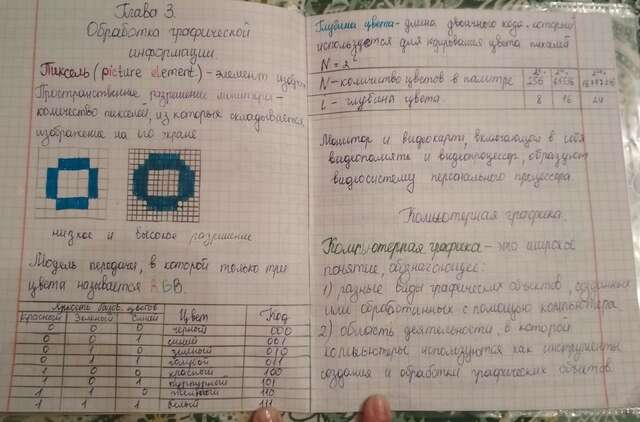 Глава 3.
Обработка графической
информации.
Пиксель (picture element) - элемент изобр
Пространственное разрешение монитора -
количество пикселей, из которых складывается
изображение на его экране
низкое и высокое разрешение
Модель передачи, в которой только три
цвета называется RGB.
Яркость базов. цветов
Красный Зеленый Синий Цвет Код
0 0 0 черный 000
0 0 1 синий 001
0 1 0 зеленый 010
0 1 1 голубой 011
1 0 0 красный 100
1 0 1 пурпурный 101
1 1 0 желтый 110
1 1 1 белый 111
Глубина цвета - длина двоичного кода, который
используется для кодирования цвета пикселей
N = 2^i
N - количество цветов в палитре 256 65536
i - глубина цвета. 8 16 24
Монитор и видеокарта, включающая в себя
видеопамять и видеопроцессор, образуют
видеосистему персонального процессора.
Компьютерная графика.
Компьютерная графика - это широкое
понятие, обозначающее:
1) разные виды графических объектов, созданных
или обработанных с помощью компьютера
2) область деятельности, в которой
компьютеры используются как инструменты
создания и обработки графических объектов.